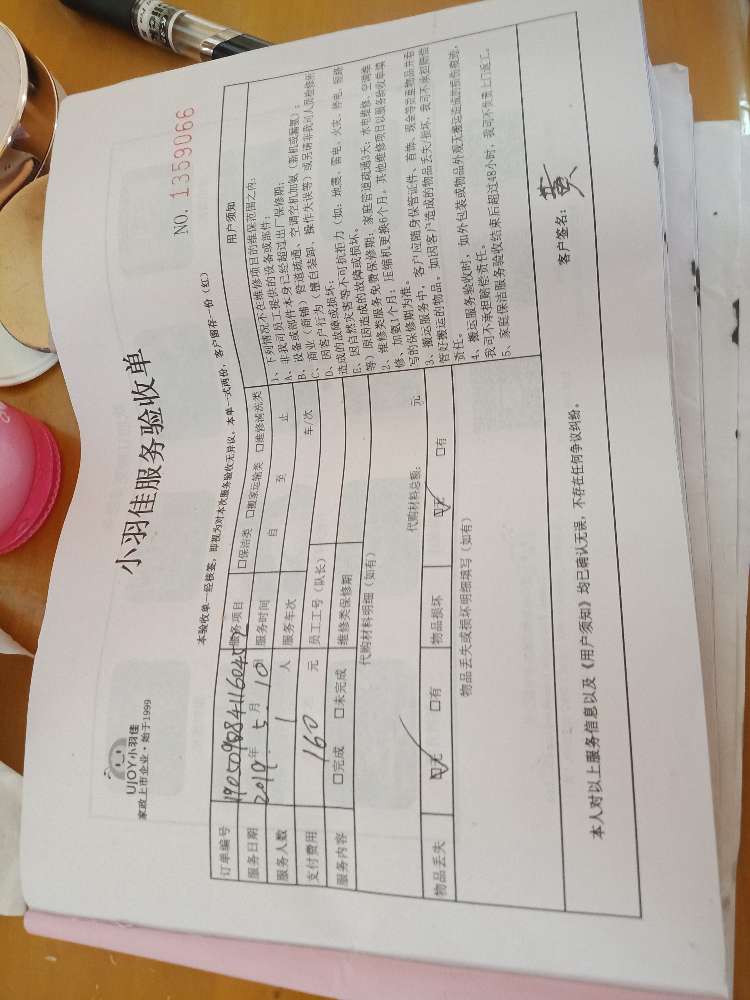 UJOY小羽佳
家政上市企业·始于1999
小羽佳服务验收单
NO. 1359066
本验收单一经核签，即视为对本次服务验收无异议，本单一式两份，客户留存一份（红）
订单编号
服务项目 □保洁类 □搬家运输类 □维修清洗类
服务日期 2019年5月10日 服务时间 自 至 止
服务人数 1人 服务车次 车/次
支付费用 160元 员工工号（队长）
服务内容 □完成 □未完成 维修类保修期
代购材料明细（如有）
代购材料总额： 元
物品丢失 ☑无 □有 物品损坏 ☑无 □有
物品丢失或损坏明细填写（如有）
用户须知
1、下列情况不在维修项目的维保范围之内：
A、非我司员工提供的设备或部件；
B、设备或部件本身已经超过出厂保修期；
C、商业（商铺）管道疏通、空调空机加氟（新机或漏氟）；
D、因客户行为（擅自装卸、操作失误等）或另请非我司人员检修所
造成的故障或损坏；
E、因自然灾害等不可抗拒力（如：地震、雷电、火灾、停电、短路
等）原因造成的故障或损坏。
2、维修类服务免费保修期：家庭管道疏通3天；水电维修、空调维
修、加氟1个月；压缩机更换6个月，其他维修项目以服务验收单填
写的保修期为准。
3、搬运服务中，客户应随身保管证件、首饰、现金等贵重物品并看
管好搬运的物品。如因客户造成的物品丢失/损坏，我司不承担赔偿
责任。
4、搬运服务验收时，如外包装或物品外观无搬运造成的损伤痕迹，
我司不承担赔偿责任。
5、家庭保洁服务验收结束后超过48小时，我司不负责上门返工。
本人对以上服务信息以及《用户须知》均已确认无误，不存在任何争议纠纷。
客户签名： 黄